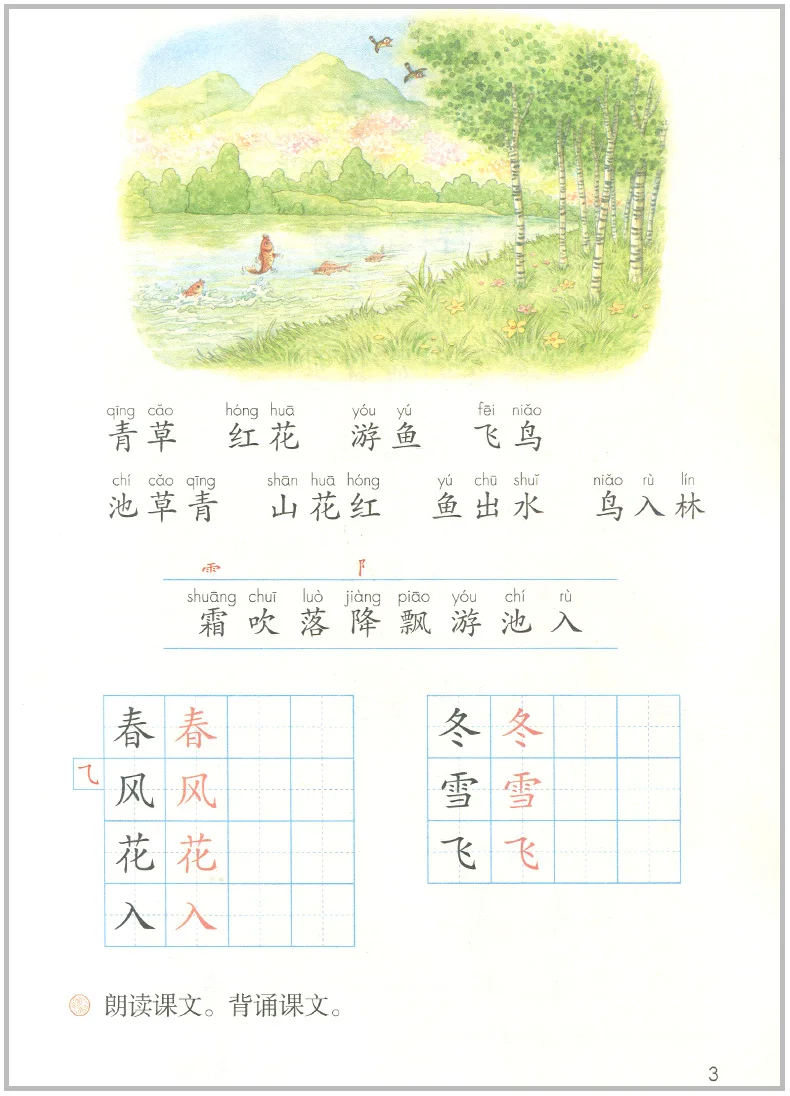 qīng cǎo hóng huā yóu yú fēi niǎo
青草 红花 游鱼 飞鸟
chí cǎo qīng shān huā hóng yú chū shuǐ niǎo rù lín
池草青 山花红 鱼出水 鸟入林
⻗ 阝
shuāng chuī luò jiàng piāo yóu chí rù
霜 吹 落 降 飘 游 池 入
春 春 冬 冬
⺄ 风 风 雪 雪
花 花 飞 飞
入 入
朗读课文。背诵课文。
3